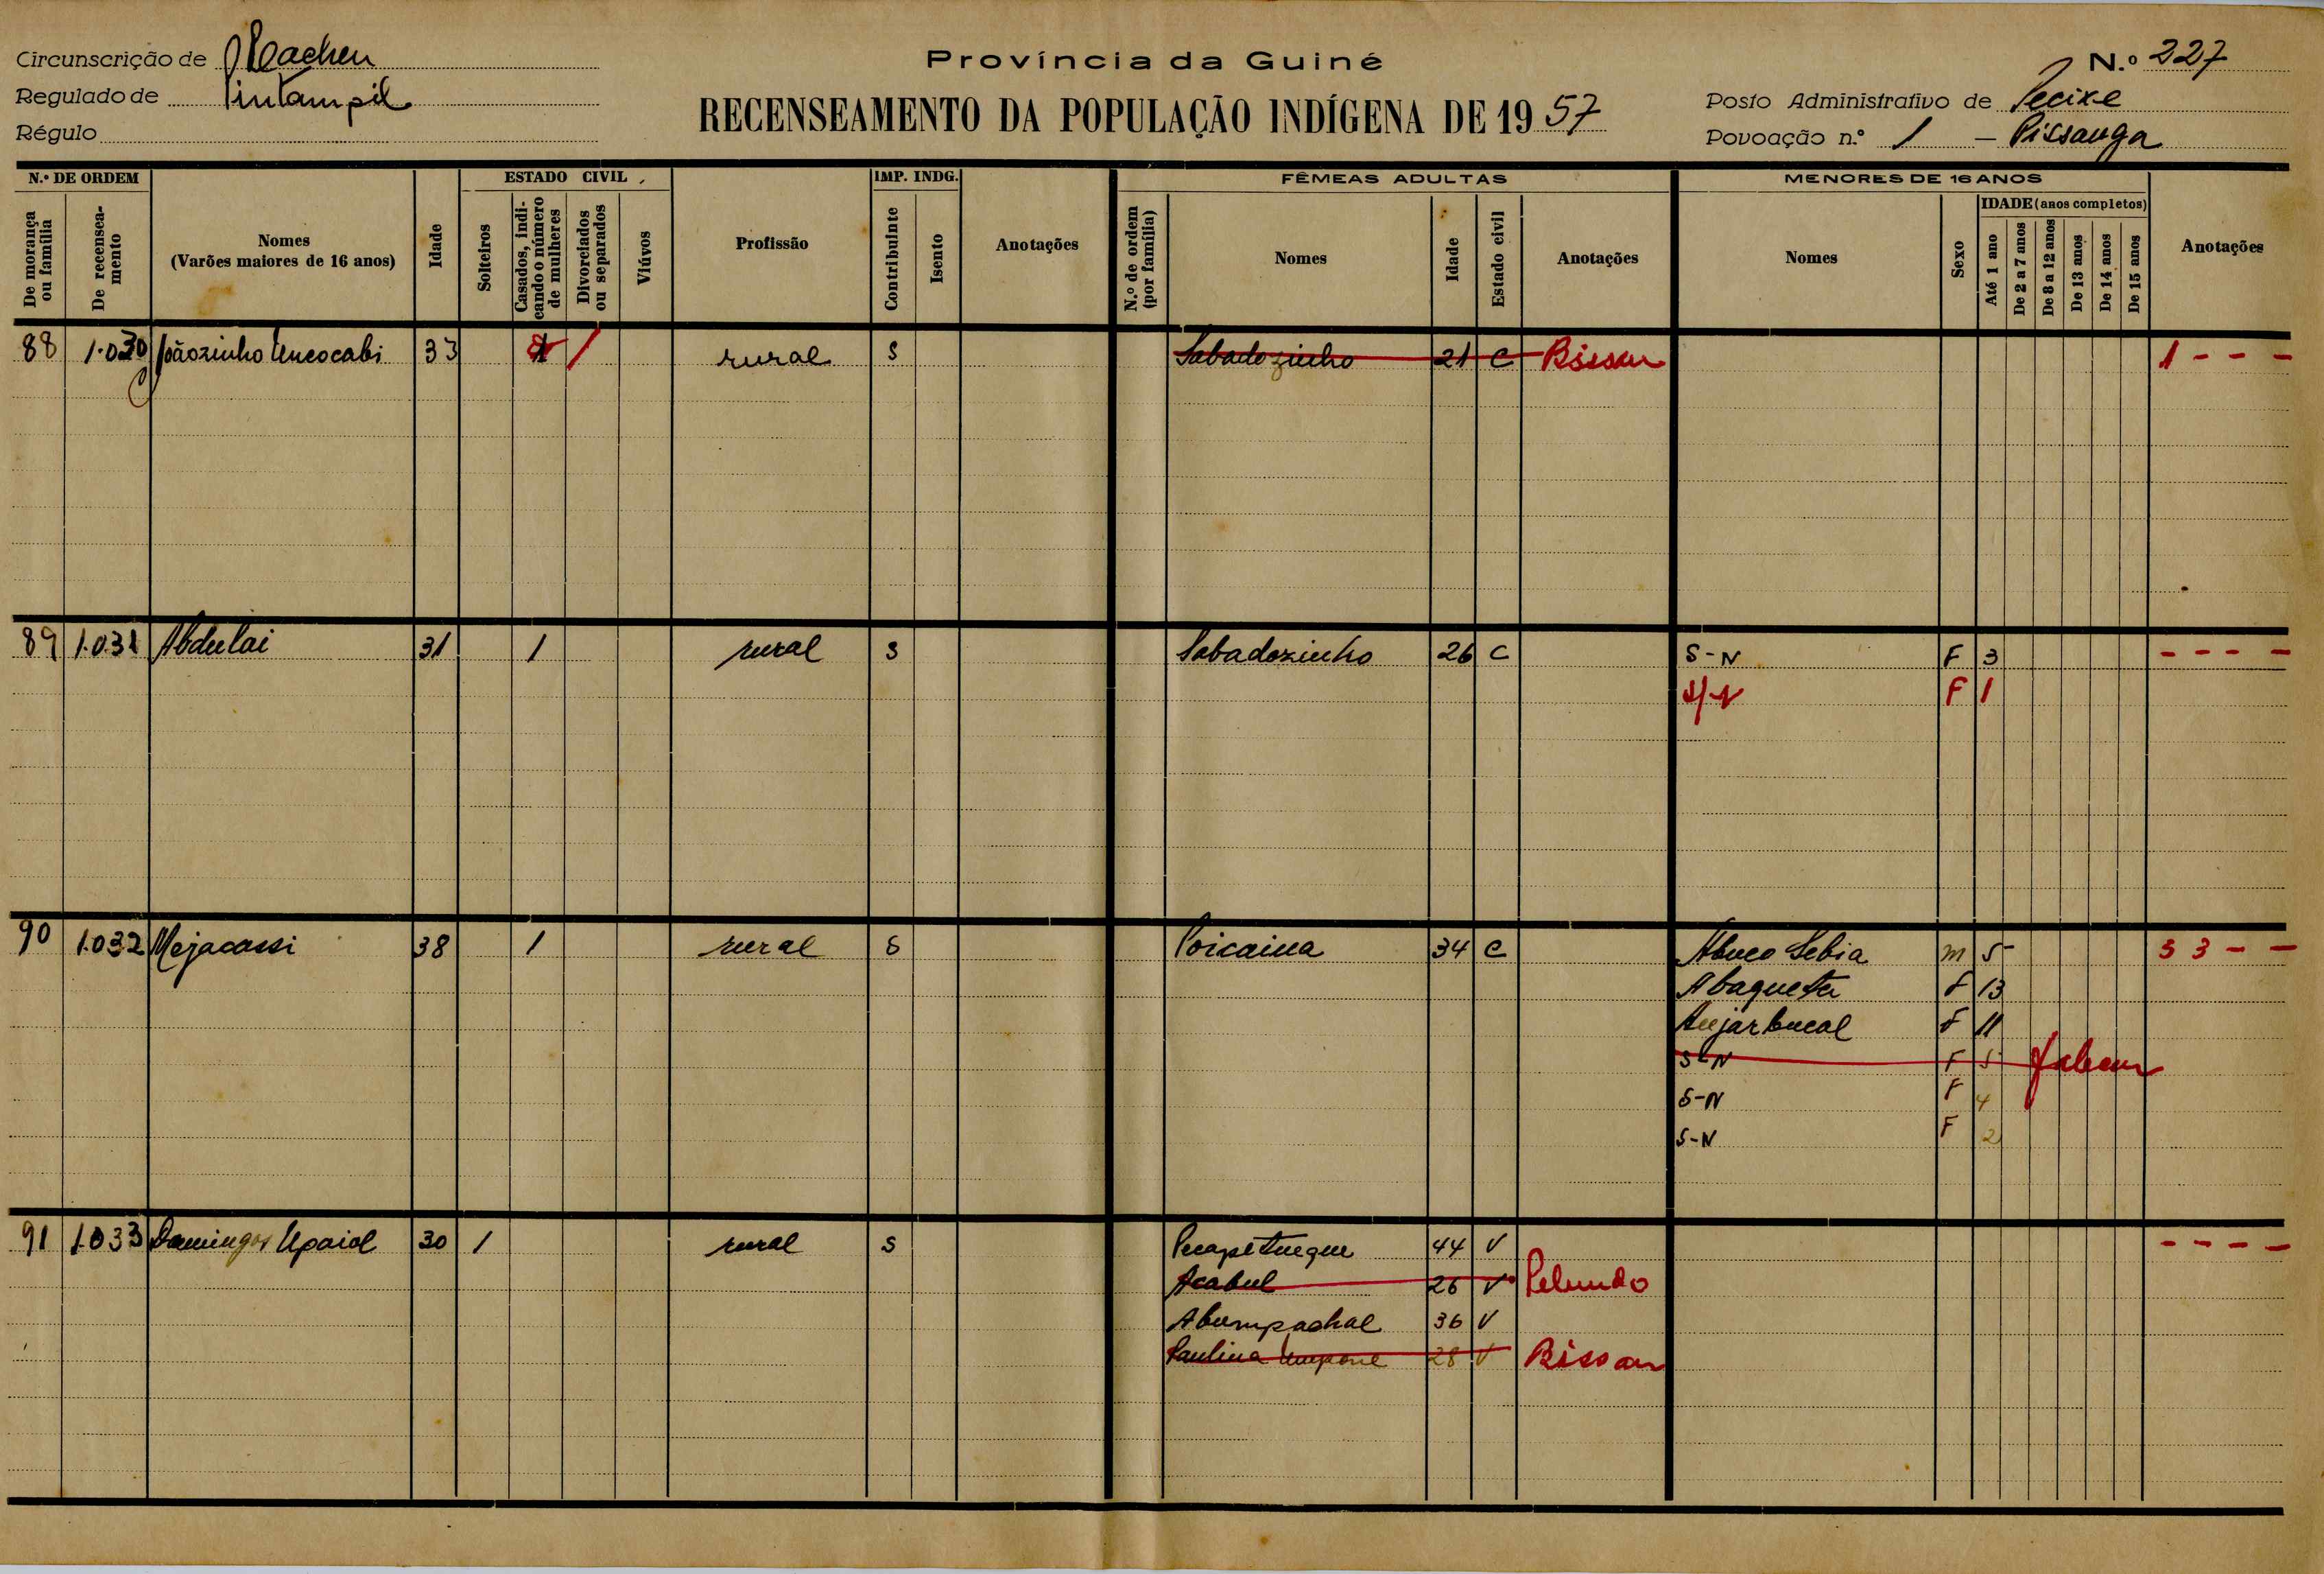 Circunscrição de Cacheu
Província da Guiné
N.º 227
Regulado de Pintampil
Régulo
RECENSEAMENTO DA POPULAÇÃO INDÍGENA DE 1957
Posto Administrativo de Pecixe
Povoação n.º 1 - Pissanga
N.º DE ORDEM
De morança ou família
De recenseamento
Nomes
(Varões maiores de 16 anos)
Idade
ESTADO CIVIL
Solteiros
Casados, indicando o número de mulheres
Divorciados ou separados
Viúvos
Profissão
IMP. INDG.
Contribuinte
Isento
Anotações
FÊMEAS ADULTAS
N.º de ordem (por família)
Nomes
Idade
Estado civil
Anotações
MENORES DE 16 ANOS
Nomes
Sexo
IDADE (anos completos)
Até 1 ano
De 2 a 7 anos
De 8 a 12 anos
De 13 anos
De 14 anos
De 15 anos
Anotações
88 1.030 Joãozinho Uncocabi 33 1 / rural S Sabadozinho 21 C Bissau 1 - - -
89 1.031 Abdulai 31 1 rural S Sabadozinho 26 C S-N F 3 - - - -
S/N F 1
90 1.032 Mejacassi 38 1 rural S Poicaina 34 C Sebia m 5 3 3 - -
Abaqueta F 13
F 11
S-N F 5 faleceu
S-N F 4
S-N F 2
91 1.033 Domingos Upaiol 30 1 rural S 44 V - - - -
Acabul 26 V Pelundo
Abumpachal 36 V
Paulina Umpone 28 V Bissau